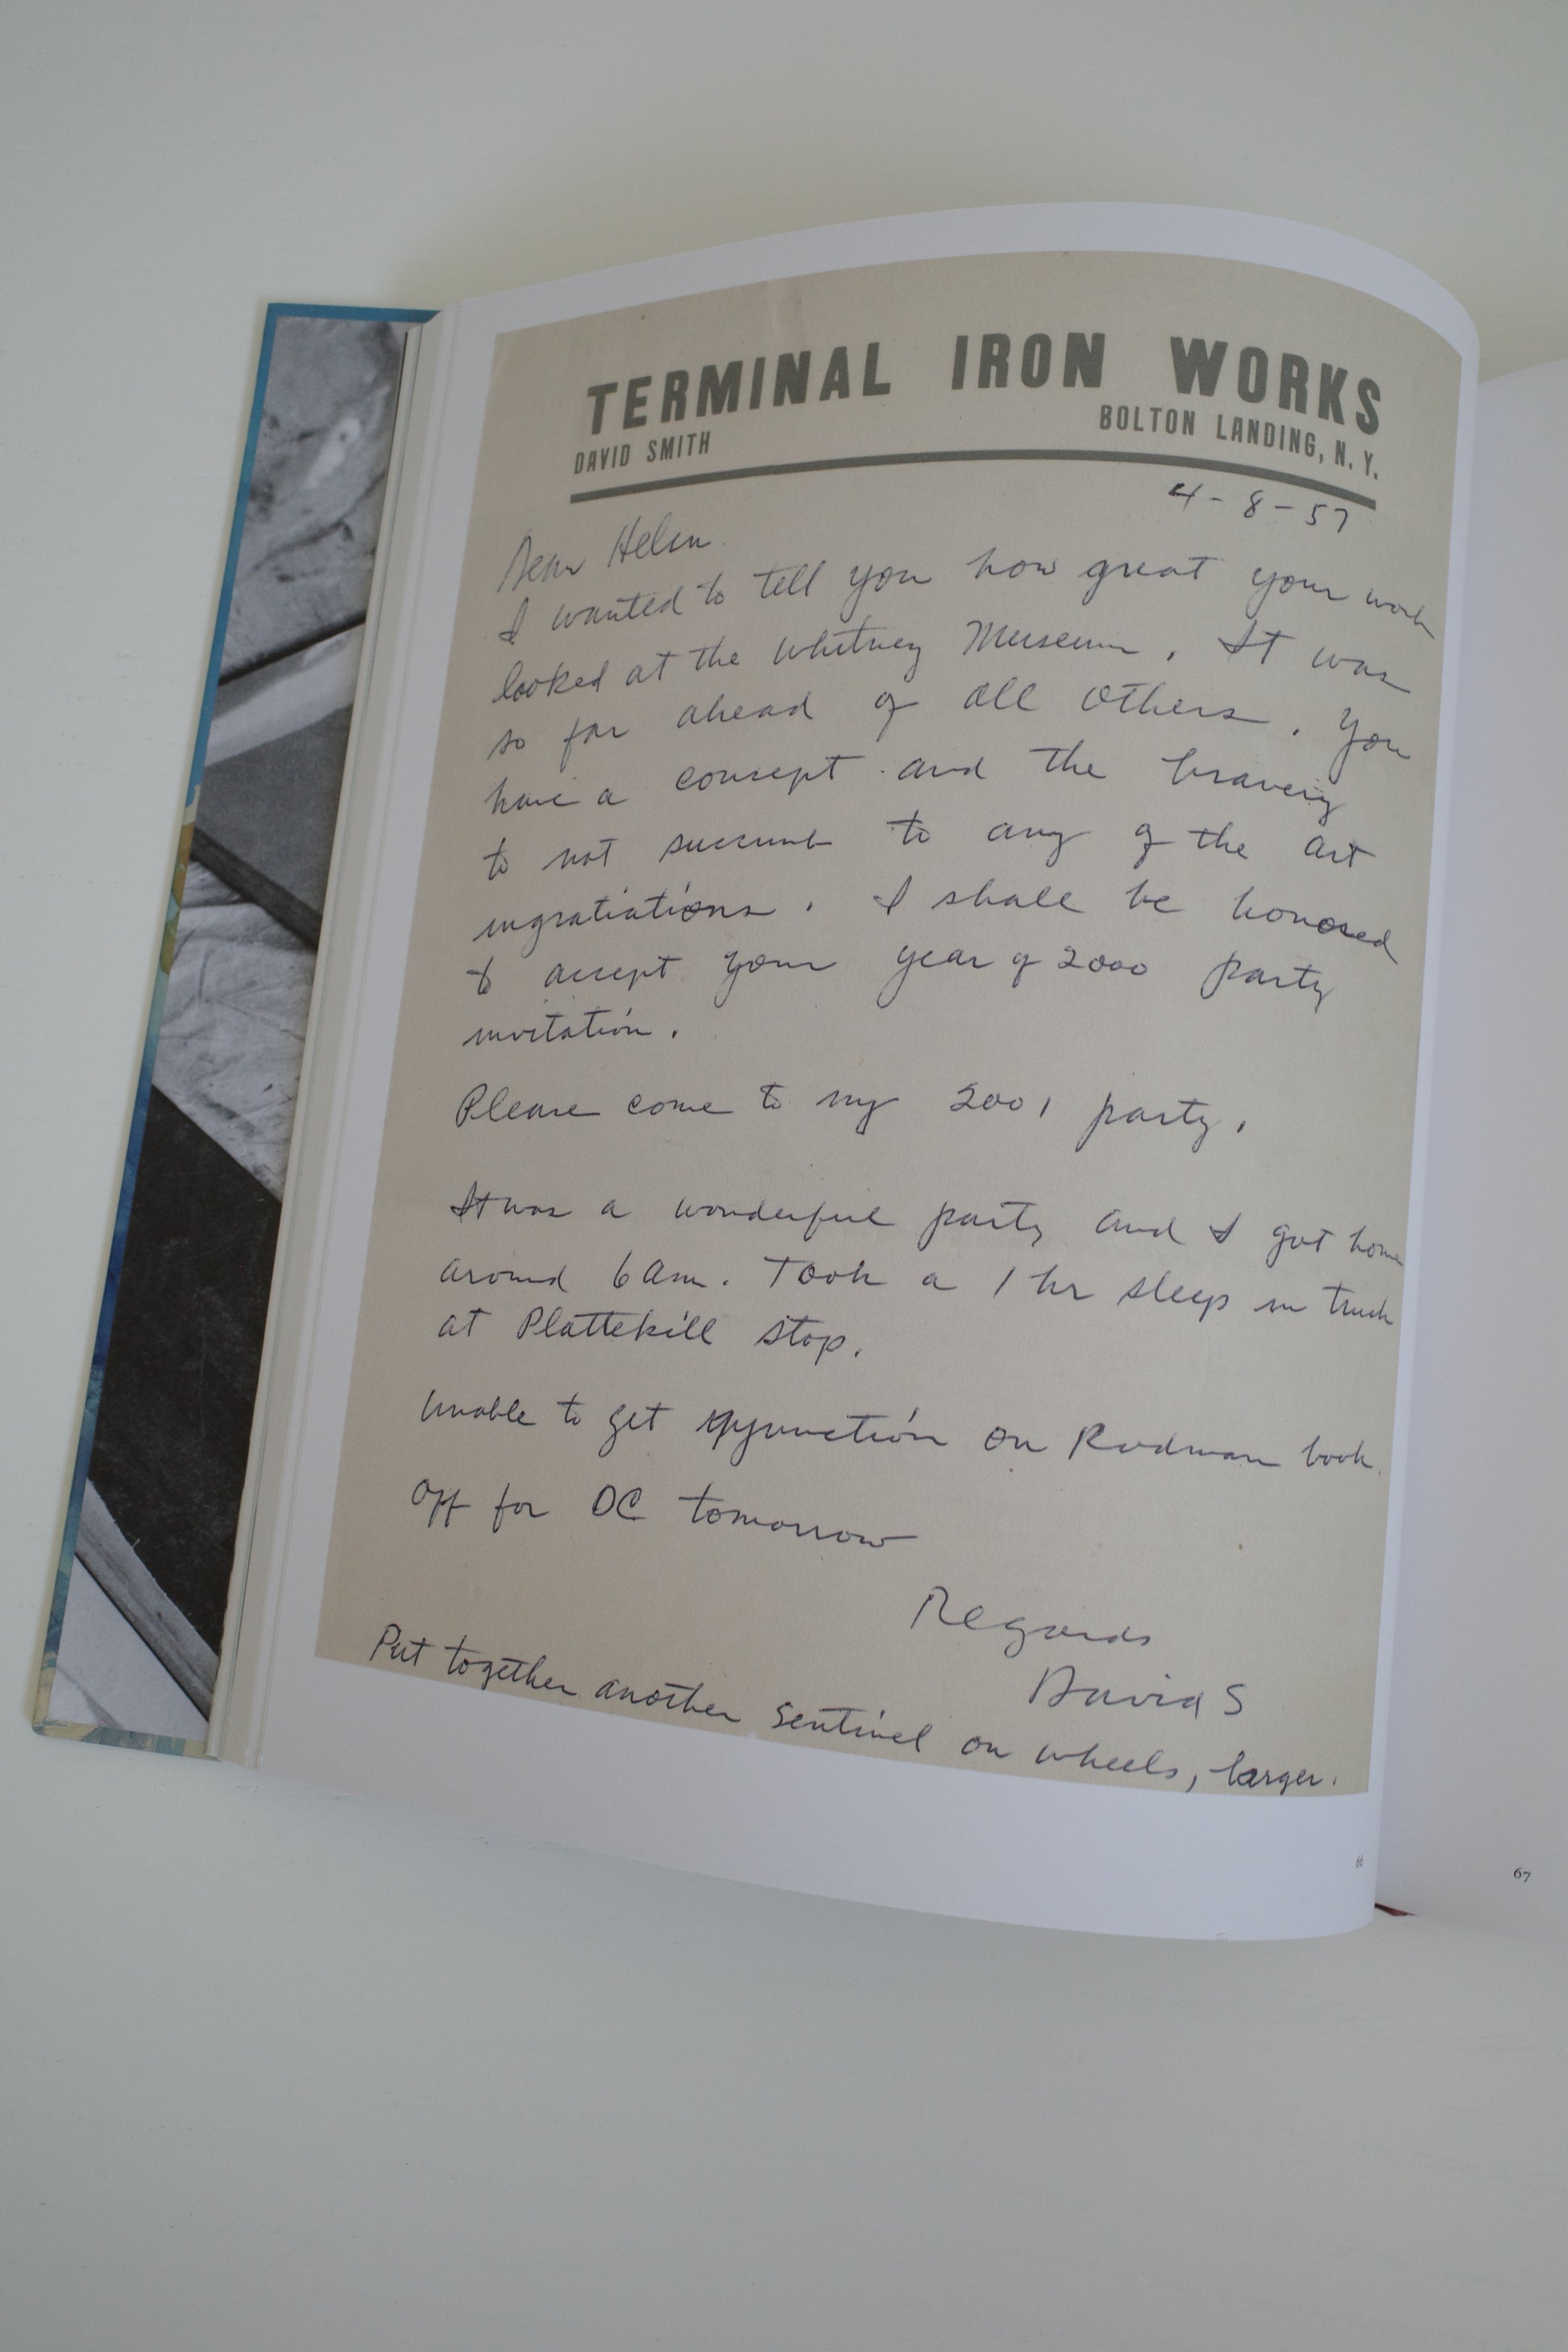 TERMINAL IRON WORKS
DAVID SMITH BOLTON LANDING, N. Y.
4-8-57
Dear Helen
I wanted to tell you how great your work
looked at the Whitney Museum. It was
so far ahead of all others. You
have a concept and the bravery
to not succumb to any of the art
ingratiations. I shall be honored
to accept your year of 2000 party
invitation.
Please come to my 2001 party.
It was a wonderful party and I got home
around 6 am. Took a 1 hr sleep in truck
at Plattekill stop.
Unable to get injunction on Rodman book.
Off for DC tomorrow
Regards
David S
Put together another sentinel on wheels, larger.
66
67